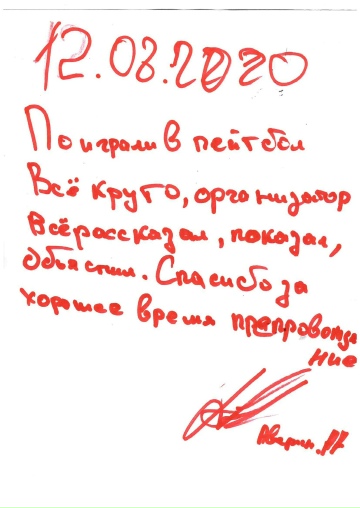 12.03.2020
Поиграли в пейтбол
Всё круто, организатор
Всё рассказал, показал,
объяснил. Спасибо за
хорошее время препровожде
ние
Аверин